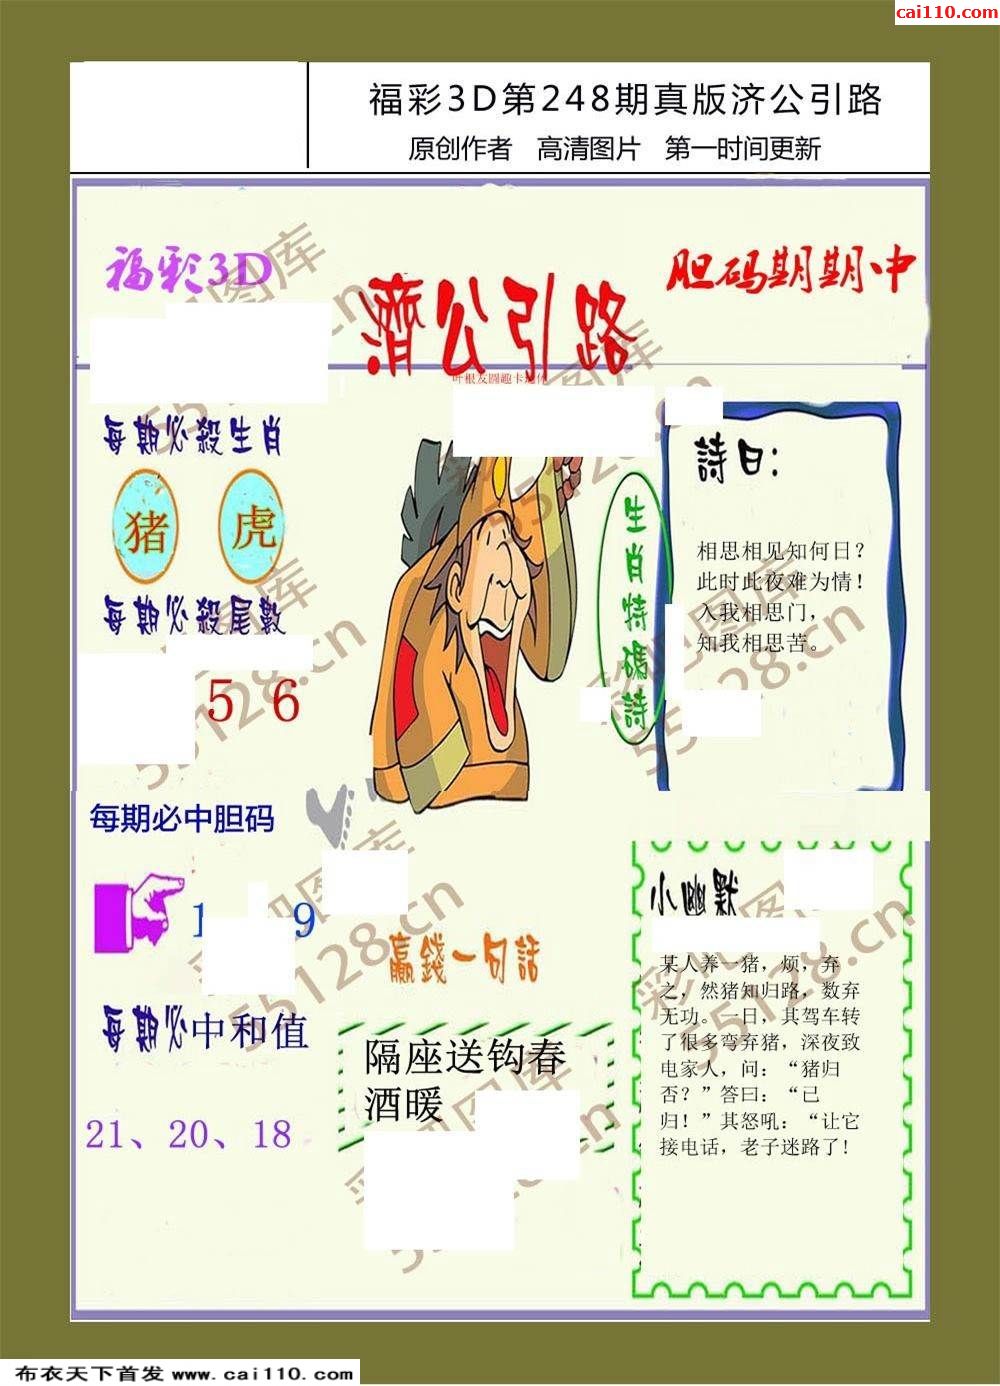 cai110.com
福彩3D第248期真版济公引路
原创作者 高清图片 第一时间更新
福彩3D
濟公引路
胆码期期中
叶根友圆趣卡通体
每期必殺生肖
猪 虎
每期必殺尾數
5 6
生肖特碼詩
詩曰:
相思相见知何日?
此时此夜难为情!
入我相思门,
知我相思苦。
每期必中胆码
1 9
每期必中和值
21、20、18
贏錢一句話
隔座送钩春
酒暖
小幽默
某人养一猪,烦,弃
之,然猪知归路,数弃
无功。一日,其驾车转
了很多弯弃猪,深夜致
电家人,问:“猪归
否?”答曰:“已
归!”其怒吼:“让它
接电话,老子迷路了!
彩吧图库
55128.cn
布衣天下首发 www.cai110.com